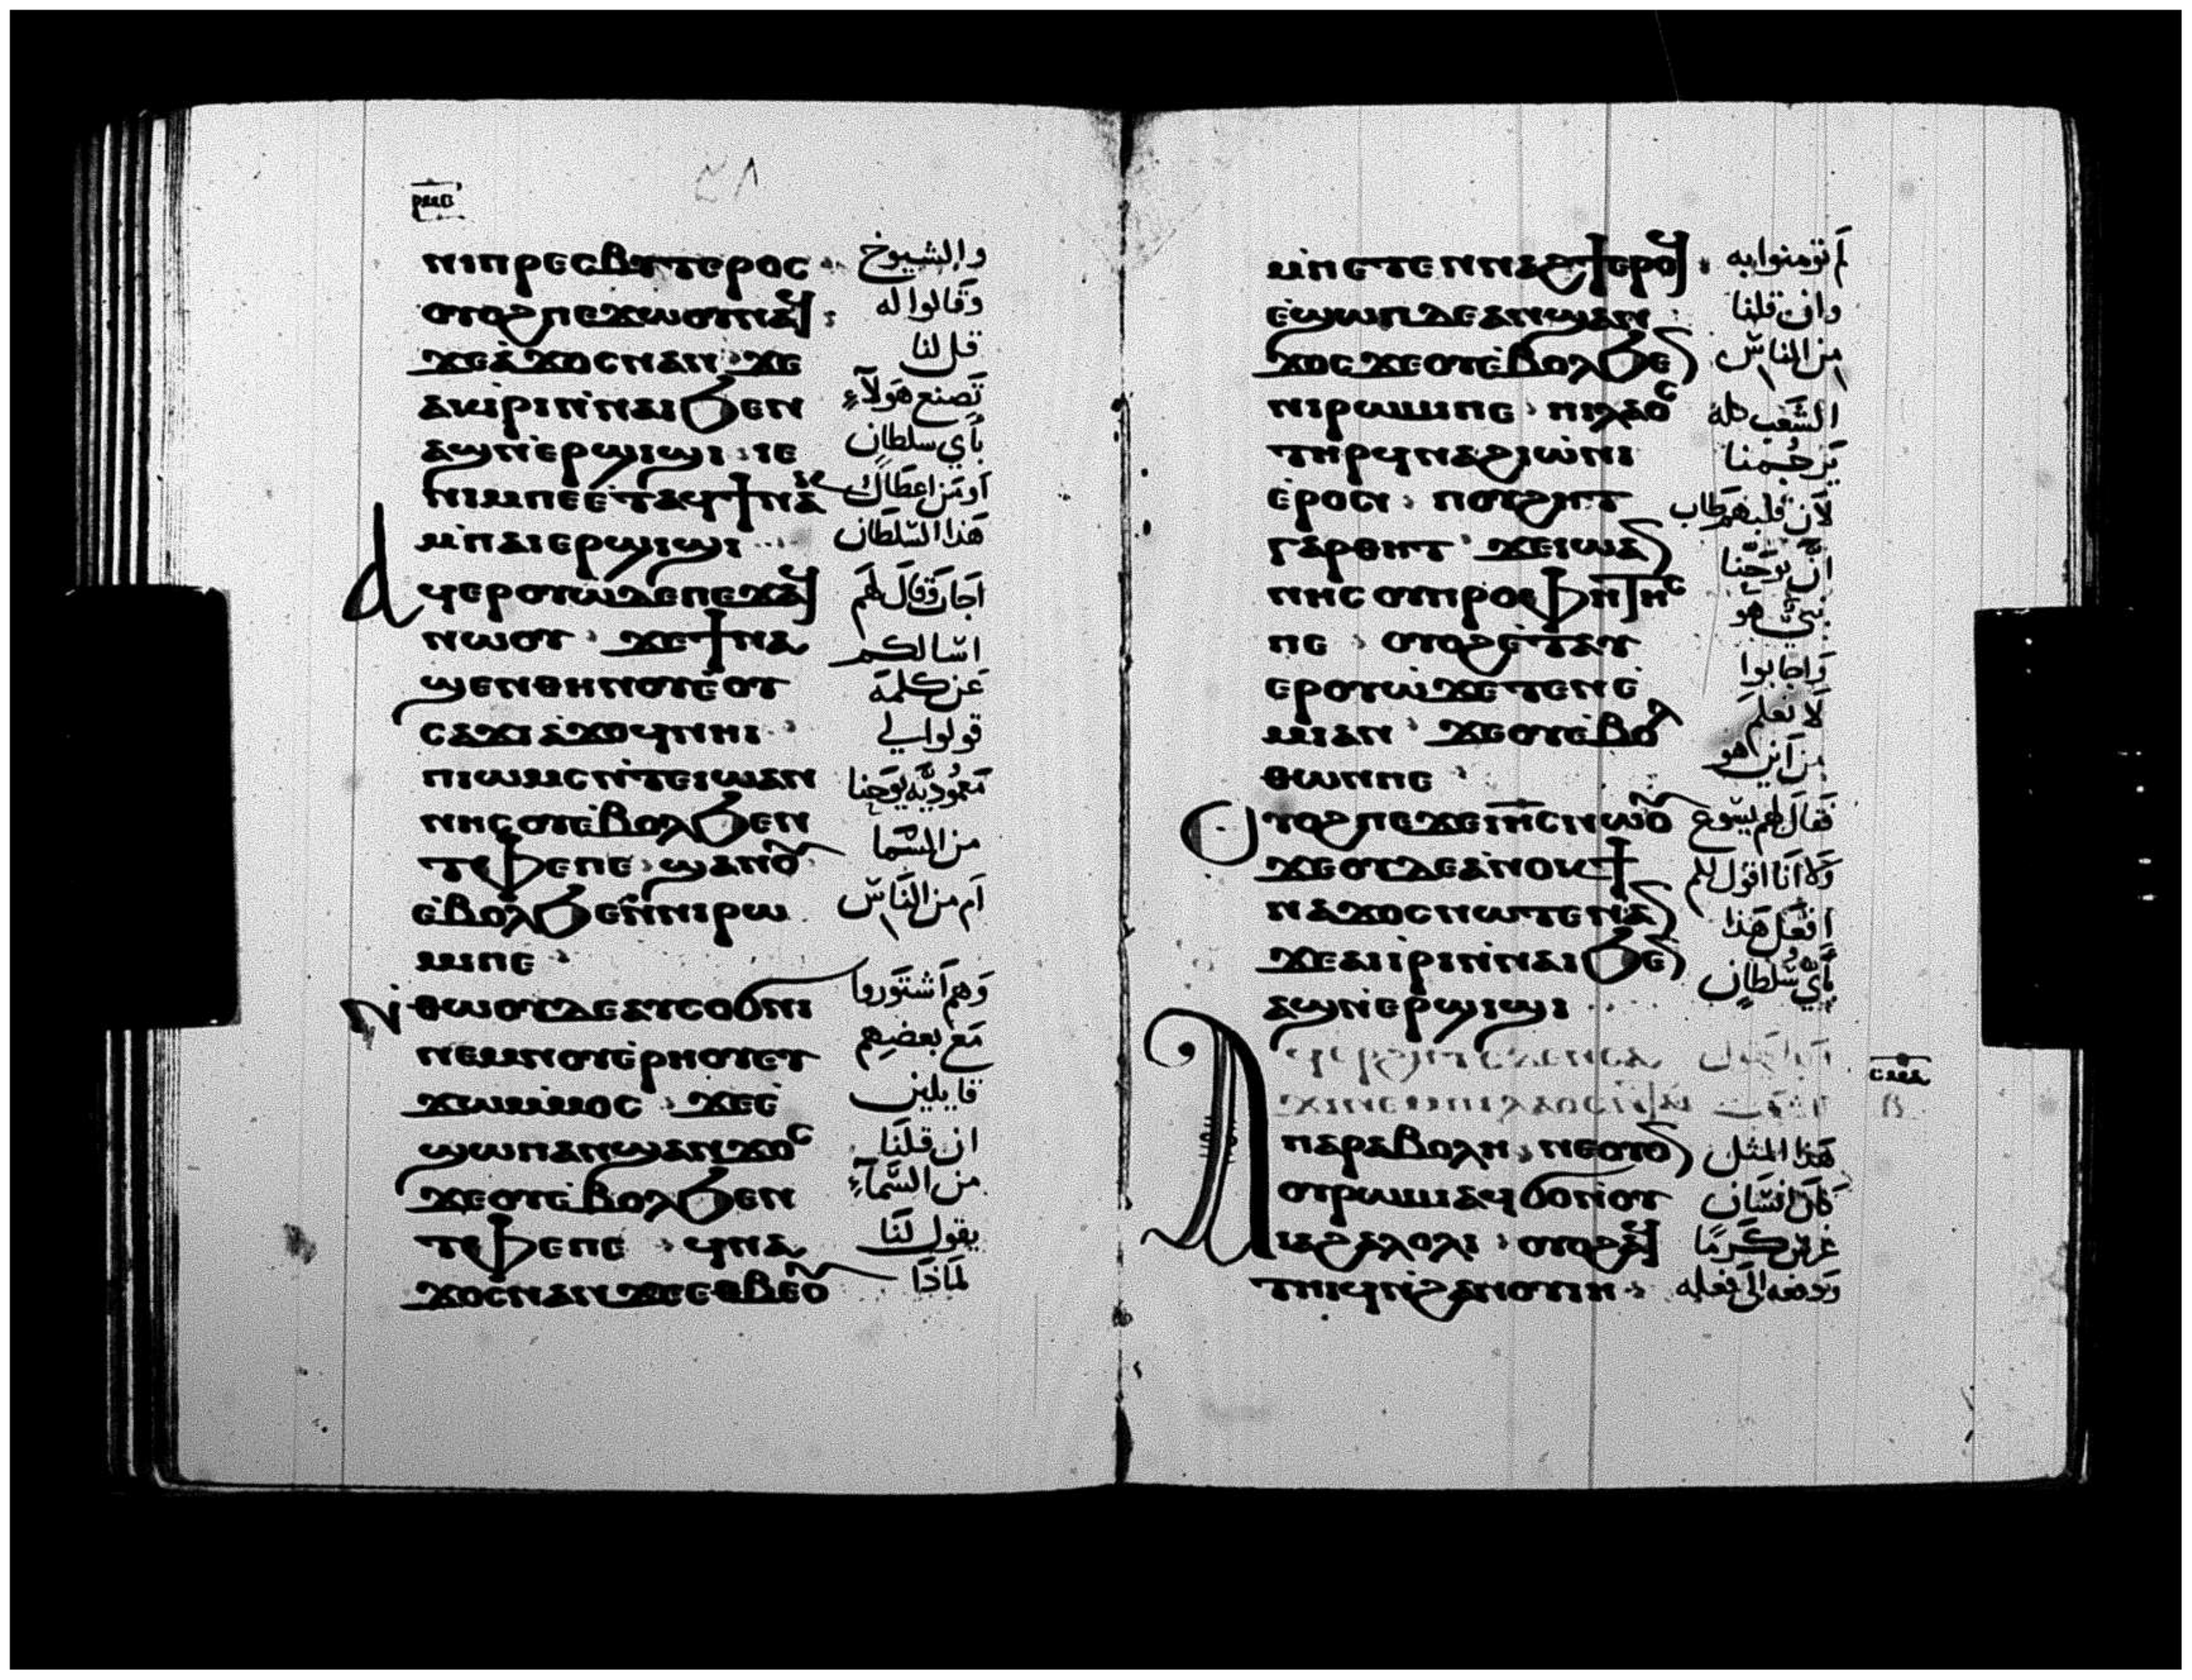 ⲣⲙⲃ
٥٨
ⲛⲓⲡⲣⲉⲥⲃⲩⲧⲉⲣⲟⲥ والشيوخ
ⲟⲩⲟϩ ⲡⲉϫⲱⲟⲩ ⲛⲁϥ وقالوا له
ϫⲉ ⲁ̀ϫⲟⲥ ⲛⲁⲛ ϫⲉ قل لنا
ⲁⲕⲓ̀ⲣⲓ ⲛ̀ⲛⲁⲓ ϧⲉⲛ تصنع هولاء
ⲁϣ ⲛ̀ⲉⲣϣⲓϣⲓ ⲓⲉ بأي سلطان
ⲛⲓⲙ ⲡⲉ ⲉ̀ⲧⲁϥϯ ⲛⲁⲕ او من اعطاك
ⲙ̀ⲡⲁⲓⲉⲣϣⲓϣⲓ هذا السلطان
ⲁϥⲉⲣⲟⲩⲱ̀ ⲇⲉ ⲡⲉϫⲁϥ اجاب وقال لهم
ⲛⲱⲟⲩ ϫⲉ ϯⲛⲁ اسالكم
ϣⲉⲛ ⲑⲏⲛⲟⲩ ⲉ̀ⲟⲩ عن كلمة
ⲥⲁϫⲓ ⲁ̀ϫⲟϥ ⲛⲏⲓ قولوا لي
ⲡⲓⲱⲙⲥ ⲛ̀ⲧⲉ ⲓⲱⲁⲛ معمودية يوحنا
ⲛⲏⲥ ⲟⲩⲉ̀ⲃⲟⲗ ϧⲉⲛ
ⲧⲫⲉ ⲡⲉ ϣⲁⲛ ⲟⲩ من السما
ⲉ̀ⲃⲟⲗ ϧⲉⲛ ⲛⲓⲣⲱ ام من الناس
ⲙⲓ ⲡⲉ
ⲛ̀ⲑⲱⲟⲩ ⲇⲉ ⲁⲩⲥⲟϭⲛⲓ وهم اشتوروا
ⲛⲉⲙ ⲛⲟⲩⲉ̀ⲣⲏⲟⲩ ⲉⲩ مع بعضهم
ϫⲱ ⲙ̀ⲙⲟⲥ ϫⲉ ⲉ̀ قايلين
ϣⲱⲡ ⲁⲛϣⲁⲛϫⲟⲥ ان قلنا
ϫⲉ ⲟⲩⲉ̀ⲃⲟⲗ ϧⲉⲛ من السماء
ⲧⲫⲉ ⲡⲉ ϥⲛⲁ يقول لنا
ϫⲟⲥ ⲛⲁⲛ ϫⲉ ⲉⲑⲃⲉ ⲟⲩ لماذا
ⲙ̀ⲡⲉⲧⲉⲛⲛⲁϩϯ ⲉⲣⲟϥ لم تومنوا به
ⲉ̀ϣⲱⲡ ⲇⲉ ⲁⲛϣⲁⲛ وان قلنا
ϫⲟⲥ ϫⲉ ⲟⲩⲉ̀ⲃⲟⲗ ϧⲉⲛ من الناس
ⲛⲓⲣⲱⲙⲓ ⲡⲉ ⲡⲓⲗⲁⲟⲥ الشعب كله
ⲧⲏⲣϥ ⲛⲁϩⲓⲱ̀ⲛⲓ يرجمنا
ⲉ̀ⲣⲟⲛ ⲡⲟⲩϩⲏⲧ لان قلبهم طاب
ⲅⲁⲣ ⲑⲏⲧ ϫⲉ ⲓⲱⲁⲛ ان يوحنا
ⲛⲏⲥ ⲟⲩⲡⲣⲟⲫⲏⲧⲏⲥ نبي هو
ⲡⲉ ⲟⲩⲟϩ ⲉ̀ⲧⲁⲩ
ⲉⲣⲟⲩⲱ̀ ϫⲉ ⲧⲉⲛⲉ̀ واجابوا
ⲙⲓ ⲁⲛ ϫⲉ ⲟⲩⲉ̀ⲃⲟⲗ لا نعلم
ⲑⲱⲛ ⲡⲉ من اين هو
ⲟⲩⲟϩ ⲡⲉϫⲉ ⲓⲏⲥ ⲛⲱⲟⲩ فقال لهم يسوع
ϫⲉ ⲟⲩⲇⲉ ⲁ̀ⲛⲟⲕ ϯ ولا انا اقول لكم
ⲛⲁϫⲟⲥ ⲛⲱⲧⲉⲛ ⲁⲛ افعل هذا
ϫⲉ ⲁⲓⲓ̀ⲣⲓ ⲛ̀ⲛⲁⲓ ϧⲉⲛ بأي سلطان
ⲁϣ ⲛ̀ⲉⲣϣⲓϣⲓ
ⲥⲙⲁ
ⲃ
ⲡⲁⲣⲁⲃⲟⲗⲏ ⲛⲉ ⲟⲩⲟⲛ هذا المثل
ⲟⲩⲣⲱⲙⲓ ⲁϥϭⲟ ⲛ̀ⲟⲩ كان انسان
ⲓⲁϩⲁⲗⲟⲗⲓ ⲟⲩⲟϩ ⲁϥ غرس كرما
ⲧⲏⲓϥ ⲛ̀ϩⲁⲛⲟⲩⲓⲏ ودفعه الى فعله